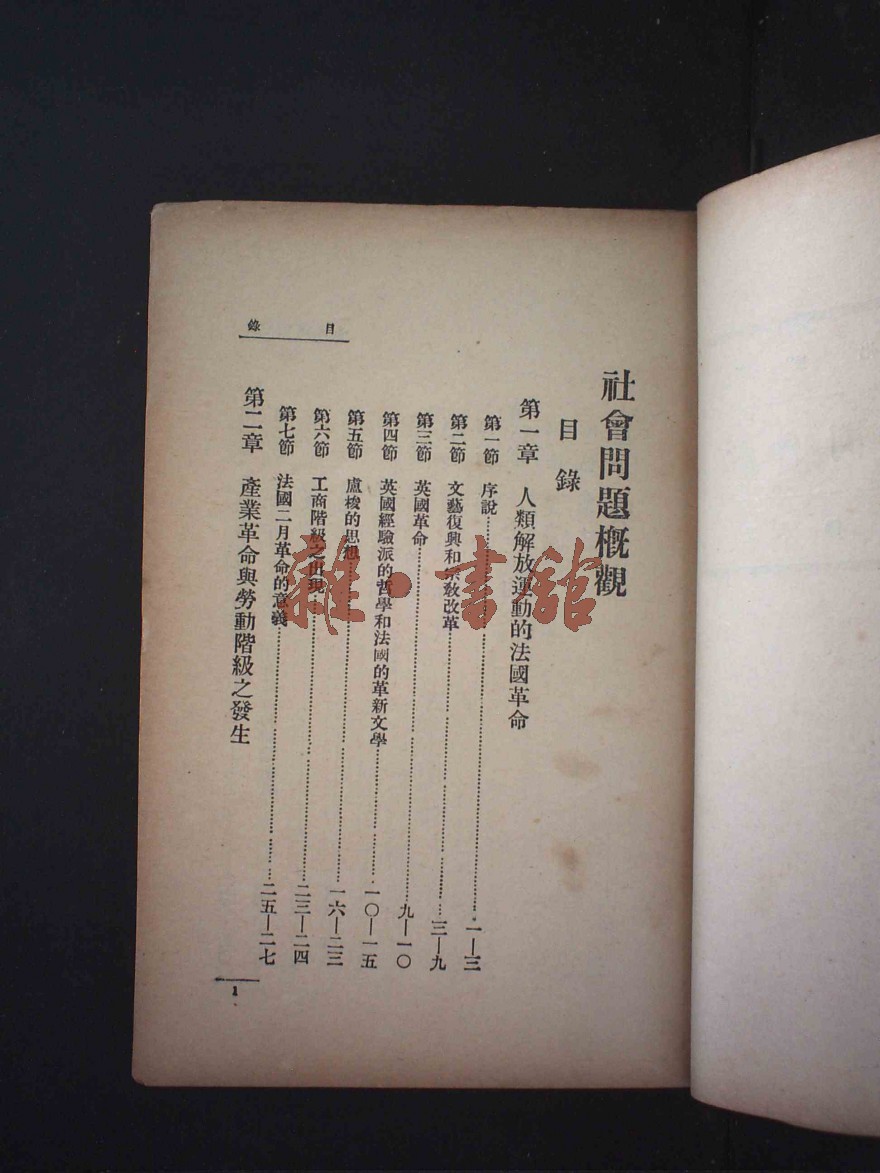 社會問題概觀
目錄
第一章 人類解放運動的法國革命
第一節 序說……一—三
第二節 文藝復興和宗教改革……三—九
第三節 英國革命……九—一〇
第四節 英國經驗派的哲學和法國的革新文學……一〇—一五
第五節 盧梭的思想……一六—二三
第六節 工商階級之出現……二三—二四
第七節 法國二月革命的意義……二五—二七
第二章 產業革命與勞動階級之發生
目錄
1
雜·書館